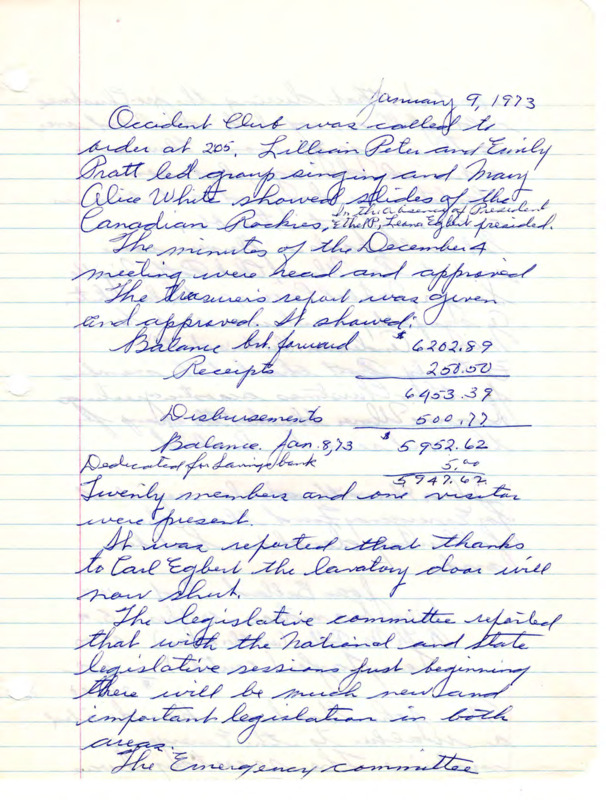 January 9, 1973
Occident Club was called to
order at 205. Lillian Peter and Emily
Pratt led group singing and Mary
Alice White showed slides of the
In the absence of President
Canadian Rockies, & the VP, Leona Egbert presided.
The minutes of the December 4
meeting were read and approved
The treasurer's report was given
and approved. It showed:
Balance brt. forward $6202.89
Receipts 250.50
6453.39
Disbursements 500.77
Balance. Jan. 8, 73 $5952.62
Dedicated for Savings bank 5.00
5947.62
Twenty members and one visitor
were present.
It was reported that thanks
to Carl Egbert the lavatory door will
now shut.
The legislative committee reported
that with the National and State
legislative sessions just beginning
there will be much new and
important legislation in both
areas.
The Emergency committee